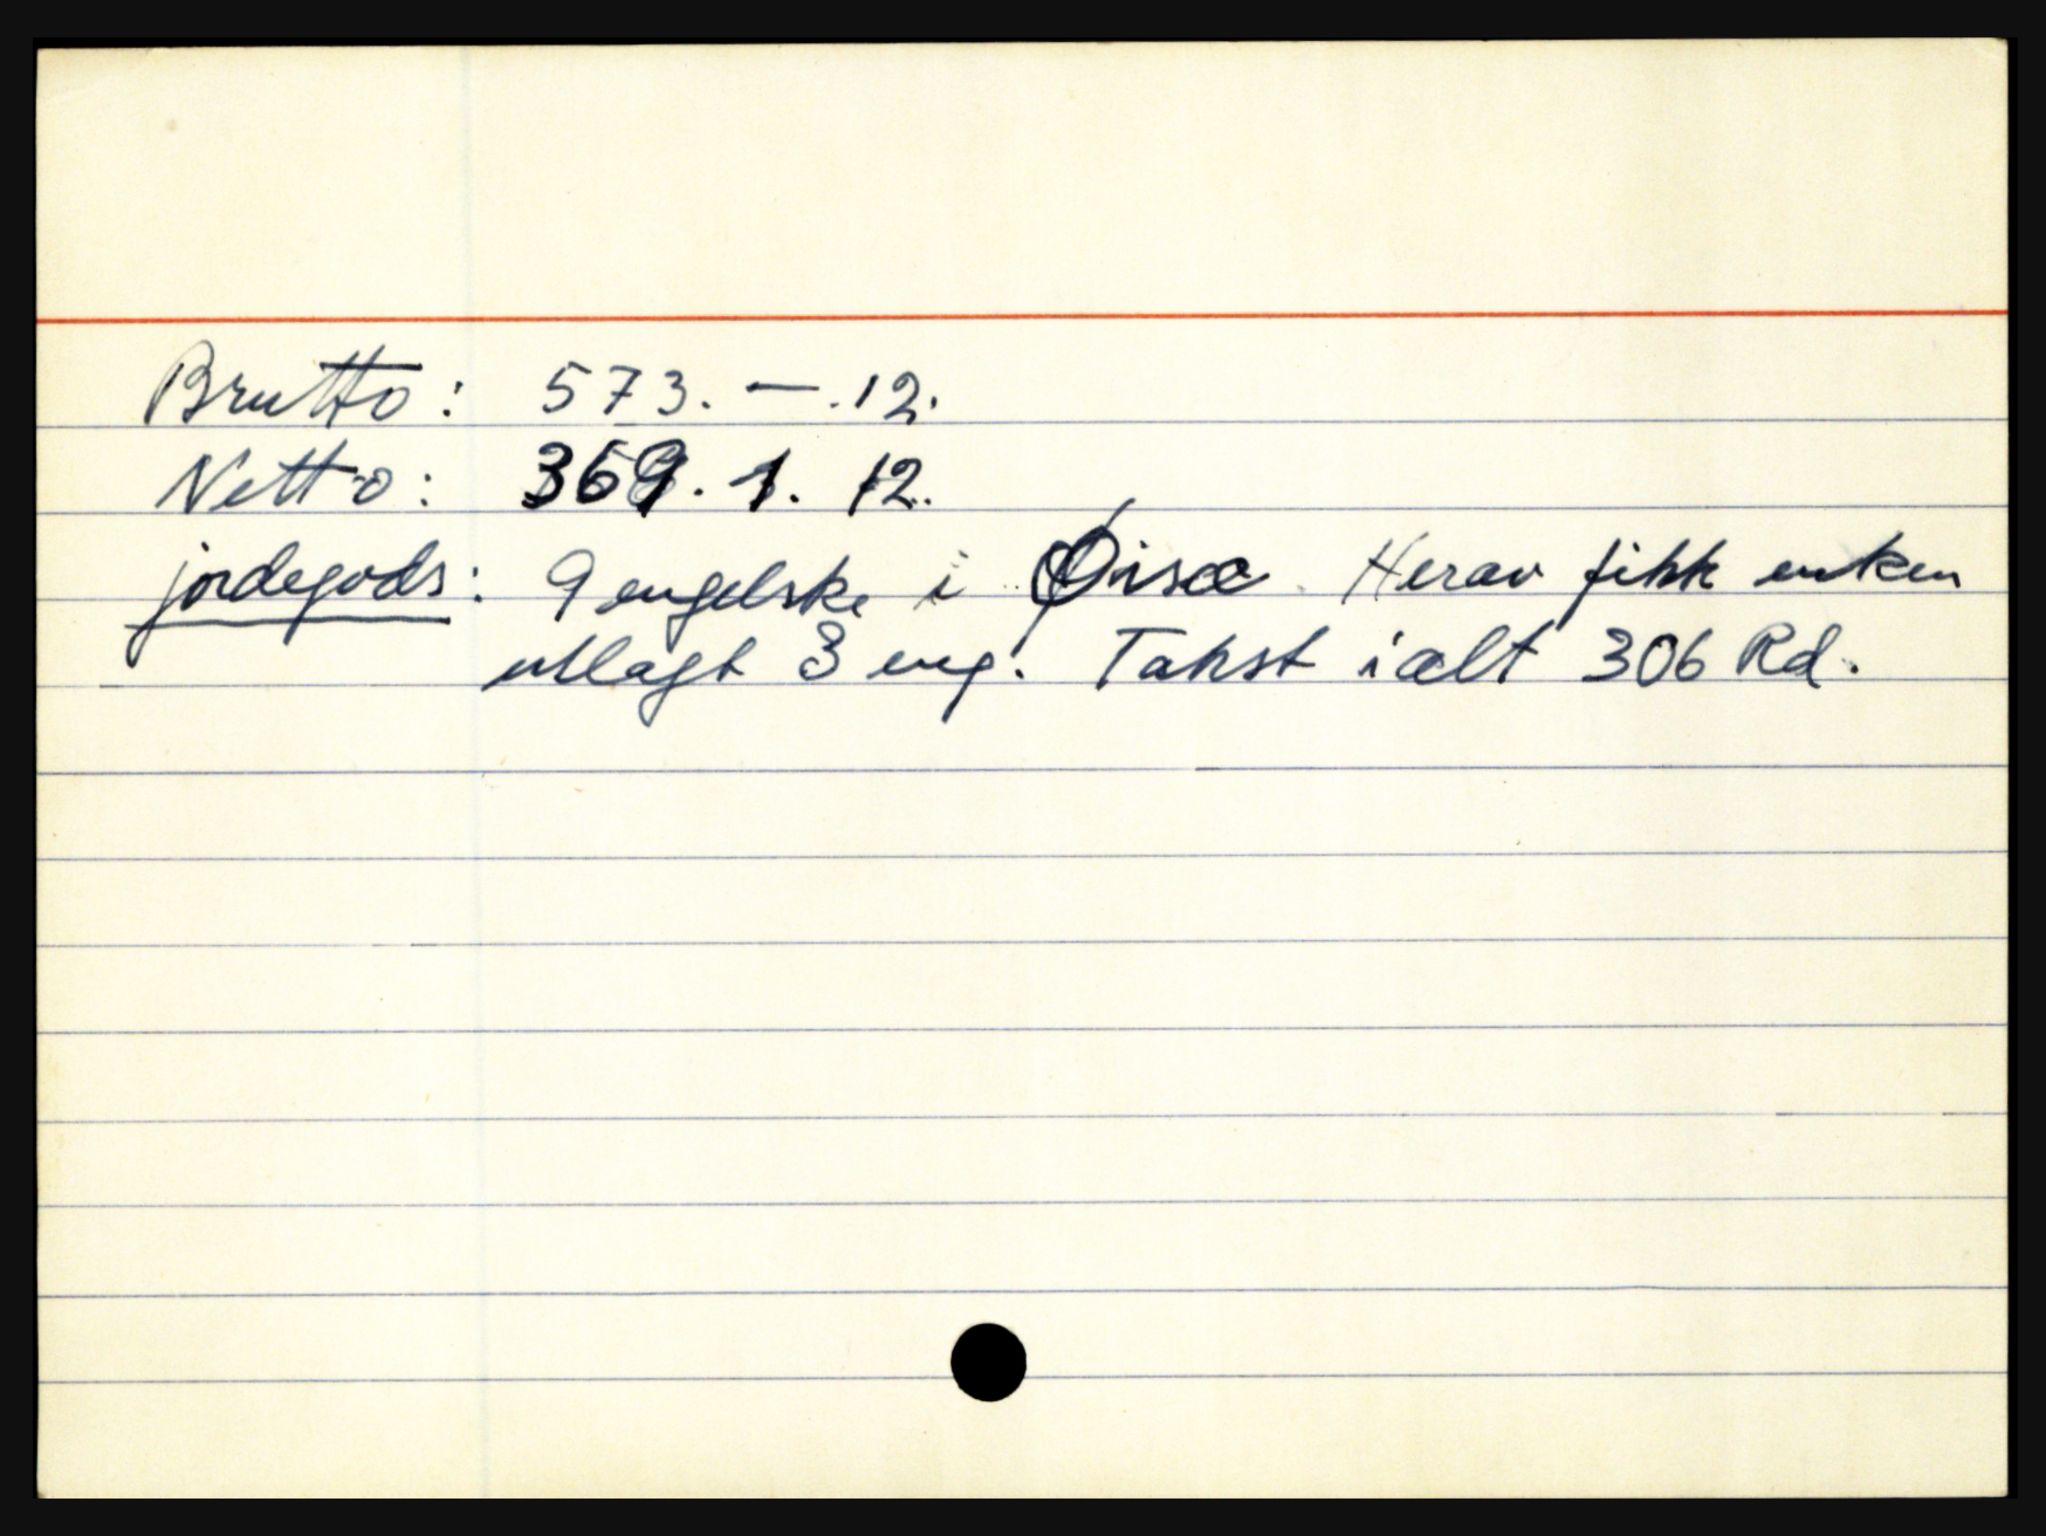 Brutto: 573. — . 12.
Netto: 369. 1. 12.
jordegods: 9 engelske i Øisæ. Herav fikk enken
utlagt 3 eng. Takst i alt 306 Rd.